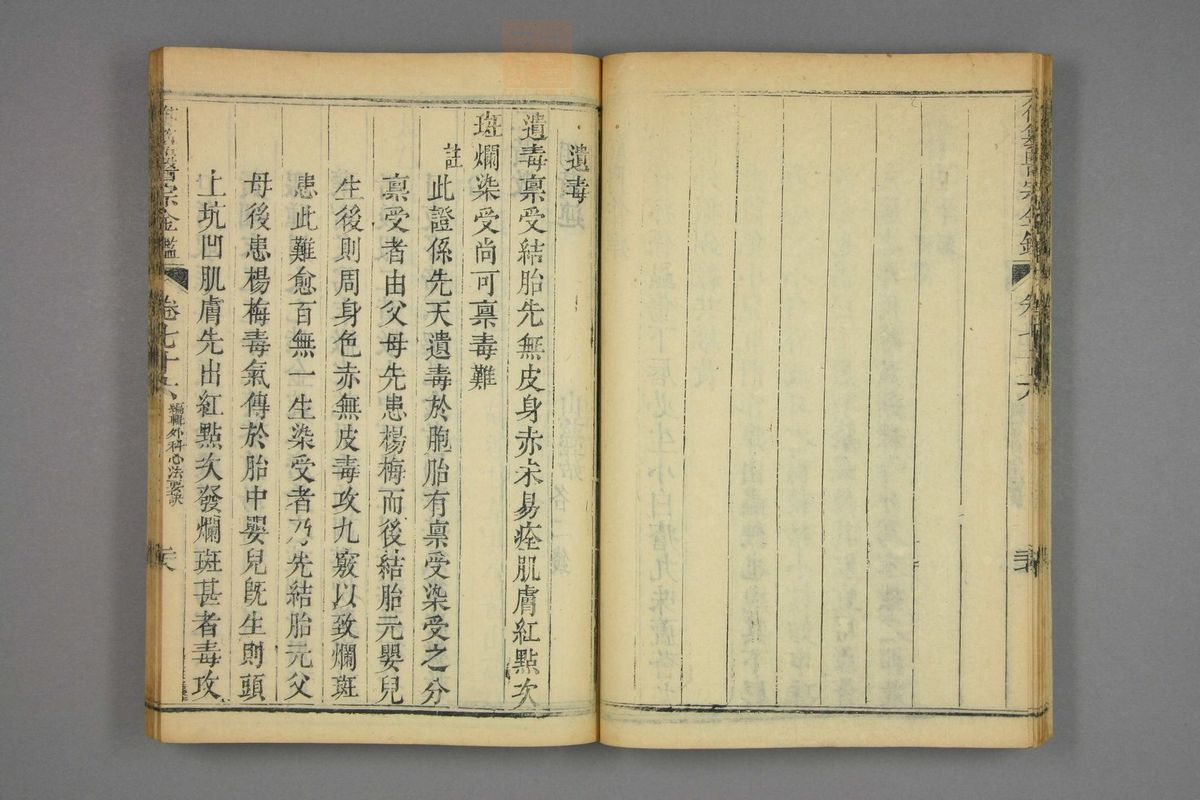 遺毒
遺毒禀受結胎先無皮身赤未易痊肌膚紅點次
斑爛染受尚可禀毒難
註
此證係先天遺毒於胞胎有禀受染受之分
禀受者由父母先患楊梅而後結胎元嬰兒
生後則周身色赤無皮毒攻九竅以致爛斑
患此難愈百無一生染受者乃先結胎元父
母後患楊梅毒氣傳於胎中嬰兒既生則頭
上坑凹肌膚先出紅點次發爛斑甚者毒攻
醫宗金鑑
卷七十六
編輯外科心法要訣
卷七十六